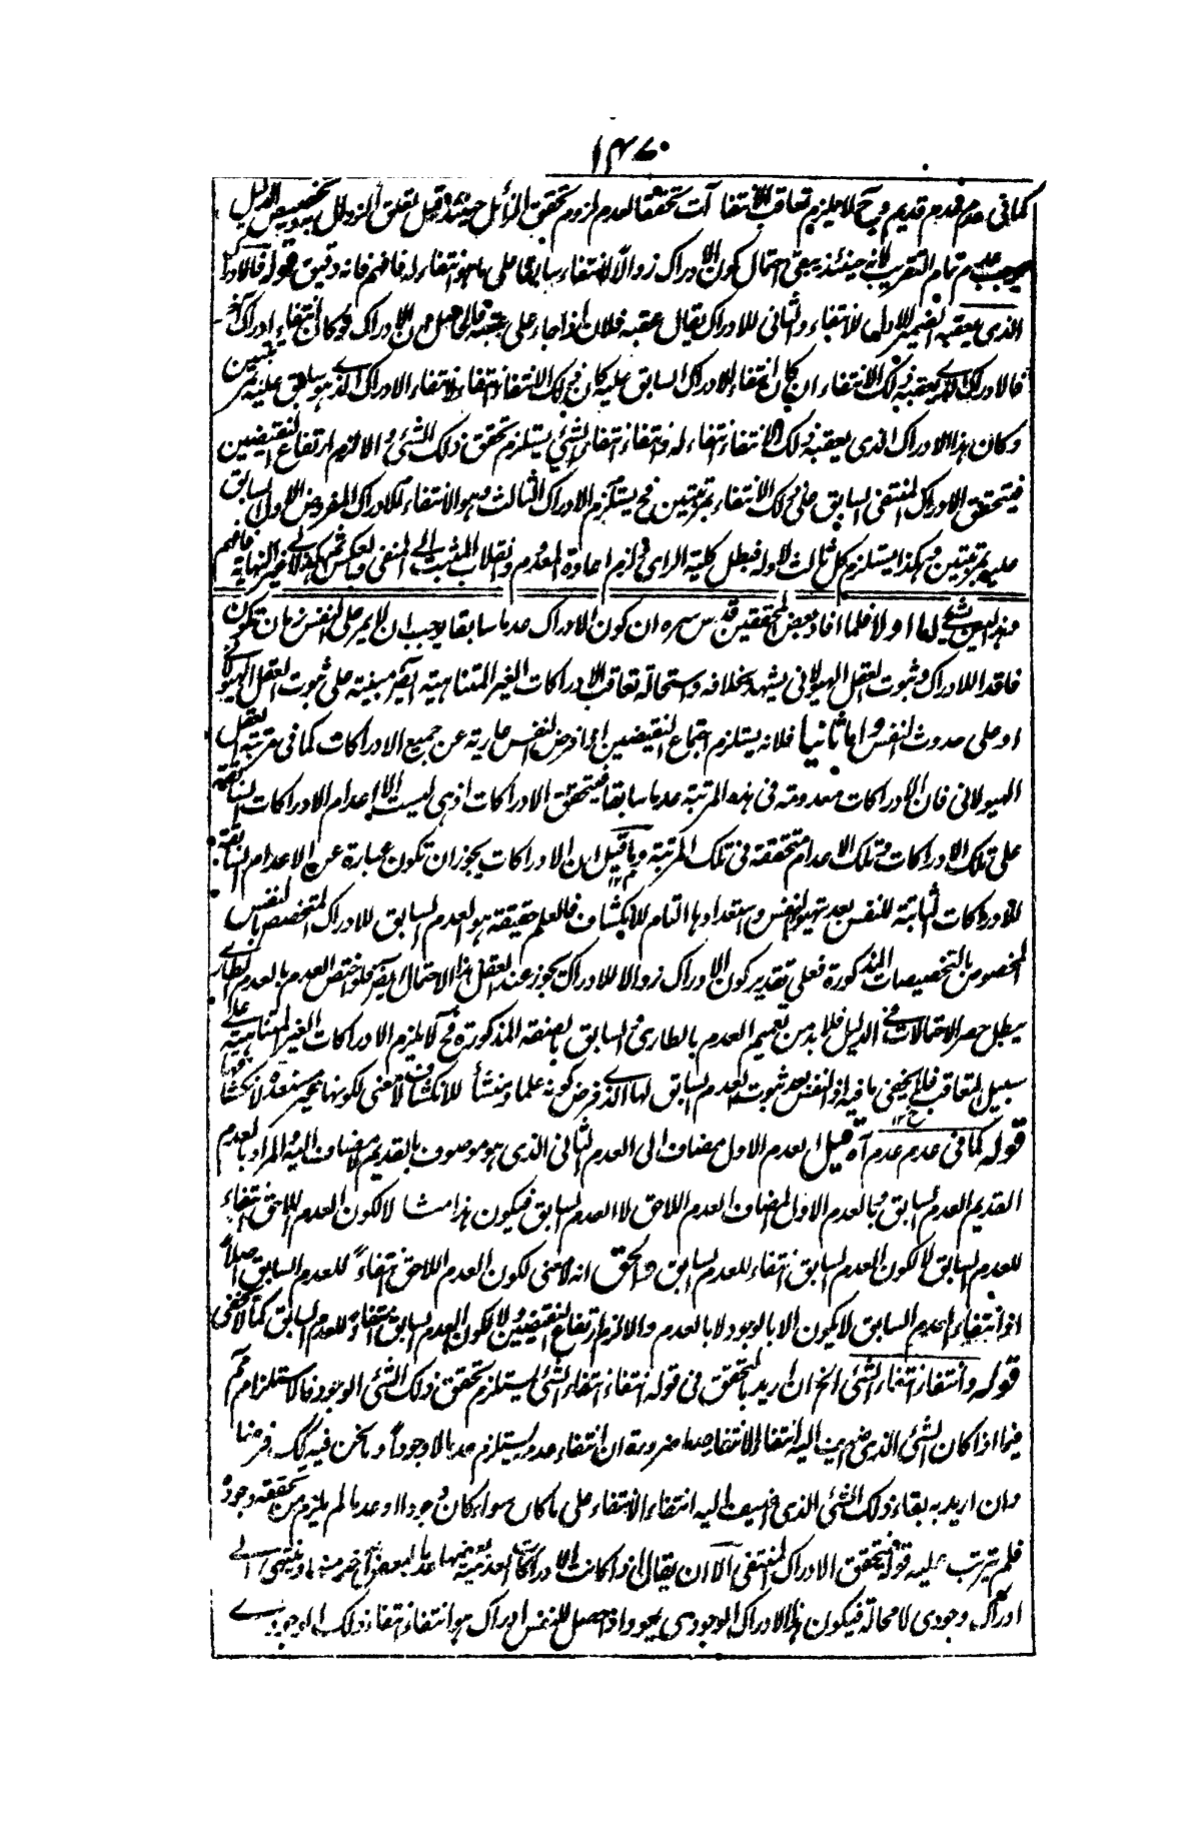 كما فى عدم عدم قديم وح لا يلزم تعاقب الانتفاآت تحققا لعدم لزوم تحقق الزائل حينئذ قبل تعلق الزوال به وتخصيص الدليل
عليه تمام التقريب لانه حينئذ يبقى احتمال كون الادراك زوالا لانتفاء سابق على ما هو انتفاء له فافهم فانه دقيق قوله فالادراك
الذى يعقبه الضمير الاول للانتفاء والثانى للادراك يقال عقبه فلان اذا جاء على عقبه فالحاصل من الادراك لو كان انتفاء ادراك آخر
فالادراك الذى يعقبه ذلك الانتفاء ان كان انتفاء للادراك السابق عليه كان ذلك الانتفاء انتفاء لانتفاء الادراك الذى هو سابق عليه بمرتبتين
وكان هذا الادراك الذى يعقبه ذلك الانتفاء انتفاء له وانتفاء انتفاء الشئ يستلزم تحقق ذلك الشئ والا لزم ارتفاع النقيضين
فيتحقق الادراك المنتفى السابق على ذلك الانتفاء بمرتبتين فح يستلزم الادراك الثالث وهو الانتفاء للادراك المفروض الاول السابق
عليه بمرتبتين وهكذا يستلزم كل ثالث لاوله فبطل كلية الراى ولزم اعادة المعدوم وانقلاب المثبت الى المنفى وبالعكس الى غير النهاية فافهم
اما اولا فلما افاد بعض المحققين قدس سره ان كون الادراك عدما سابقا يوجب ان لا يمر على النفس زمان تكون
فاقد الادراك وثبوت العقل الهيولانى يشهد بخلافه واستحالة تعاقب الادراكات الغير المتناهية ايضا مبنية على ثبوت العقل الهيولانى
او على حدوث النفس واما ثانيا فلانه يستلزم اجتماع النقيضين اذا فرض النفس عارية عن جميع الادراكات كما فى مرتبة العقل
الهيولانى فان الادراكات معدومة فى هذه المرتبة عدما سابقا فيتحقق الادراكات اذ هى ليست الا اعدام الادراكات السابقة
على تلك الادراكات وتلك الاعدام متحققة فى تلك المرتبة وما قيل ان الادراكات يجوز ان تكون عبارة عن الاعدام السابقة
للادراكات الثابتة للنفس بعد تهيؤ النفس واستعدادها التام للانكشاف فالعلم حقيقة هو العدم السابق للادراك المتخصص بالنفس
المخصوص بالتخصيصات المذكورة فعلى تقدير كون الادراك زوالا للادراك يجوز عند العقل هذا الاحتمال ايضا فلو اختص العدم بالعدم الطارى
يبطل حصر الاحتمالات فى الدليل فلا بد من تعميم العدم بالطارى والسابق بالصفة المذكورة وح لا يلزم الادراكات الغير المتناهية على
سبيل التعاقب فلا يخفى ما فيه اذ النفس بعد ثبوت العدم السابق لها الذى فرض كونه علما ومنشأ للانكشاف لا معنى لكونها غير مستعدة لانكشافها
قوله كما فى عدم عدم آه قيل العدم الاول مضاف الى العدم الثانى الذى هو موصوف بالقديم لا مضاف اليه والمراد بالعدم
القديم العدم السابق وبالعدم الاول المضاف العدم اللاحق لا العدم السابق فيكون هذا مثالا لكون العدم اللاحق انتفاء
للعدم السابق لا لكون العدم السابق انتفاء للعدم السابق والحق انه لا معنى لكون العدم اللاحق انتفاءً للعدم السابق اصلاً
اذ انتفاء العدم السابق لا يكون الا بالوجود لا بالعدم والا لزم ارتفاع النقيضين ولا لكون العدم السابق انتفاءً للعدم السابق كما لا يخفى
قوله وانتفاء انتفاء الشئ الخ ان اريد بالتحقق فى قوله انتفاء انتفاء الشئ يستلزم تحقق ذلك الشئ الوجود فالاستلزام ثم
فيما اذا كان الشئ الذى اضيف اليه انتفاء الانتفاء عدما ضرورة ان انتفاء عدمه يستلزم عدما لا وجوداً وما نحن فيه كذلك فرضا
وان اريد به بقاء ذلك الشئ الذى اضيف اليه انتفاء الانتفاء على ما كان سواء كان وجودا او عدما لم يلزم من تحققه وجود
فلم يترتب عليه قوله فيتحقق الادراك المنتفى الا ان يقال اذا كانت الادراكات العدمية بعضها عدما لبعض آخر منها وينتهى الى
ادراك وجودى لا محالة فيكون هذا الادراك الوجودى يمحو واذا حصل للنفس ادراك هو انتفاء انتفاء ذلك الوجودى